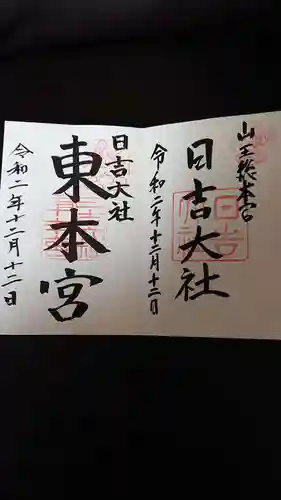 山王総本宮
日吉大社
令和二年十二月十二日
日吉大社
東本宮
令和二年十二月十二日